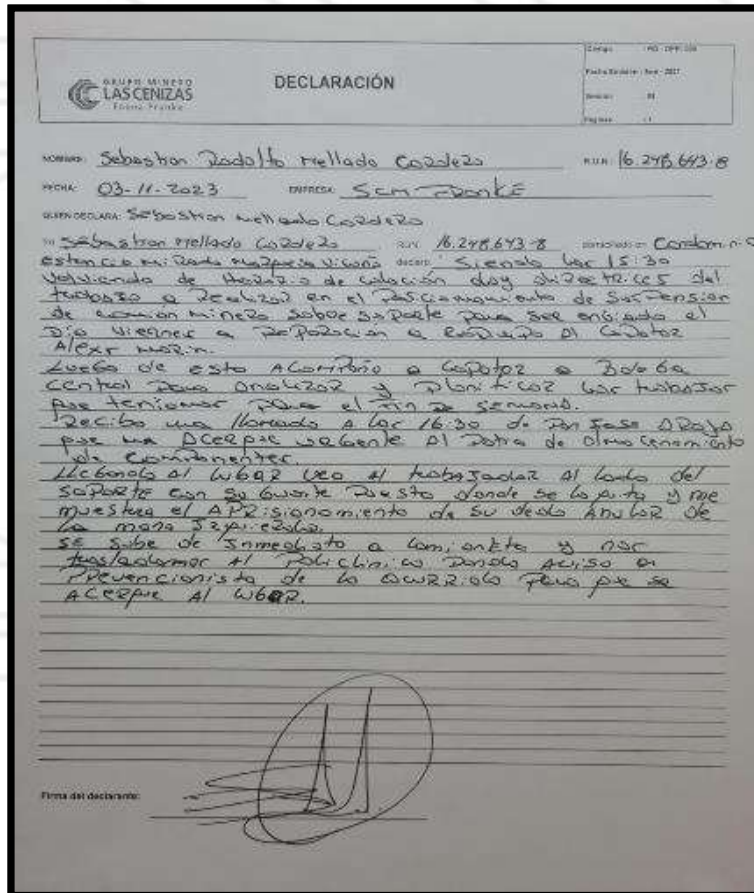 GRUPO MINERO
LAS CENIZAS
Faena Franke
DECLARACIÓN
NOMBRE: Sebastian Rodolfo Mellado Cordero R.U.N: 16.248.643-8
FECHA: 03-11-2023 EMPRESA: SCM-FRANKE
QUIEN DECLARA: Sebastian Mellado Cordero
Yo Sebastian Mellado Cordero RUN 16.248.643-8 domiciliado en
declaro: Siendo las 15:30
volviendo de Horario de colación doy directrices del
trabajo a Realizar en el de Suspensión
de camion minero sobre soporte para ser enviado el
Dia Viernes a Reparación a Al Capataz
Alexr
Luego de esto Acompaño a Capataz a Bodega
central para analizar y planificar los trabajos
que teniamos para el fin de semana.
Recibo una llamado a las 16:30 de Don Jose
que me Acerque urgente Al Patio de almacenamiento
de componentes.
Llegando Al lugar veo Al trabajador Al lado del
soporte con su guante Puesto donde se lo quita y me
muestra el APRisionamiento de su dedo Anular de
la mano Izquierda.
se sube de Inmediato a camioneta y nos
trasladamos Al Policlinico Donde Aviso a
Prevencionista de lo ocurrido para que se
Acerque Al lugar.
Firma del declarante: